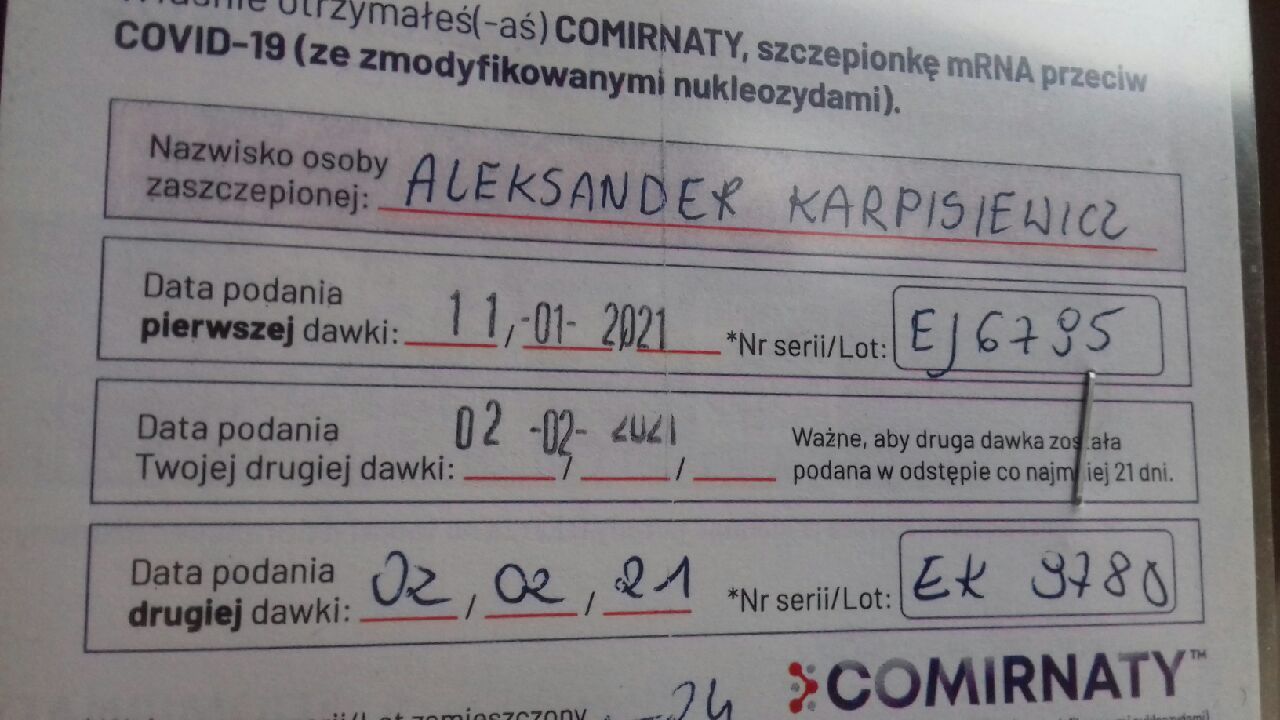 otrzymałeś(-aś) COMIRNATY, szczepionkę mRNA przeciw
COVID-19 (ze zmodyfikowanymi nukleozydami).
Nazwisko osoby
zaszczepionej: ALEKSANDER KARPISIEWICZ
Data podania
pierwszej dawki: 11,-01- 2021 *Nr serii/Lot: EJ6795
Data podania 02 -02- 2021 Ważne, aby druga dawka została
Twojej drugiej dawki: / / podana w odstępie co najmniej 21 dni.
Data podania
drugiej dawki: 02 / 02 / 21 *Nr serii/Lot: EK 9780
COMIRNATY™
24